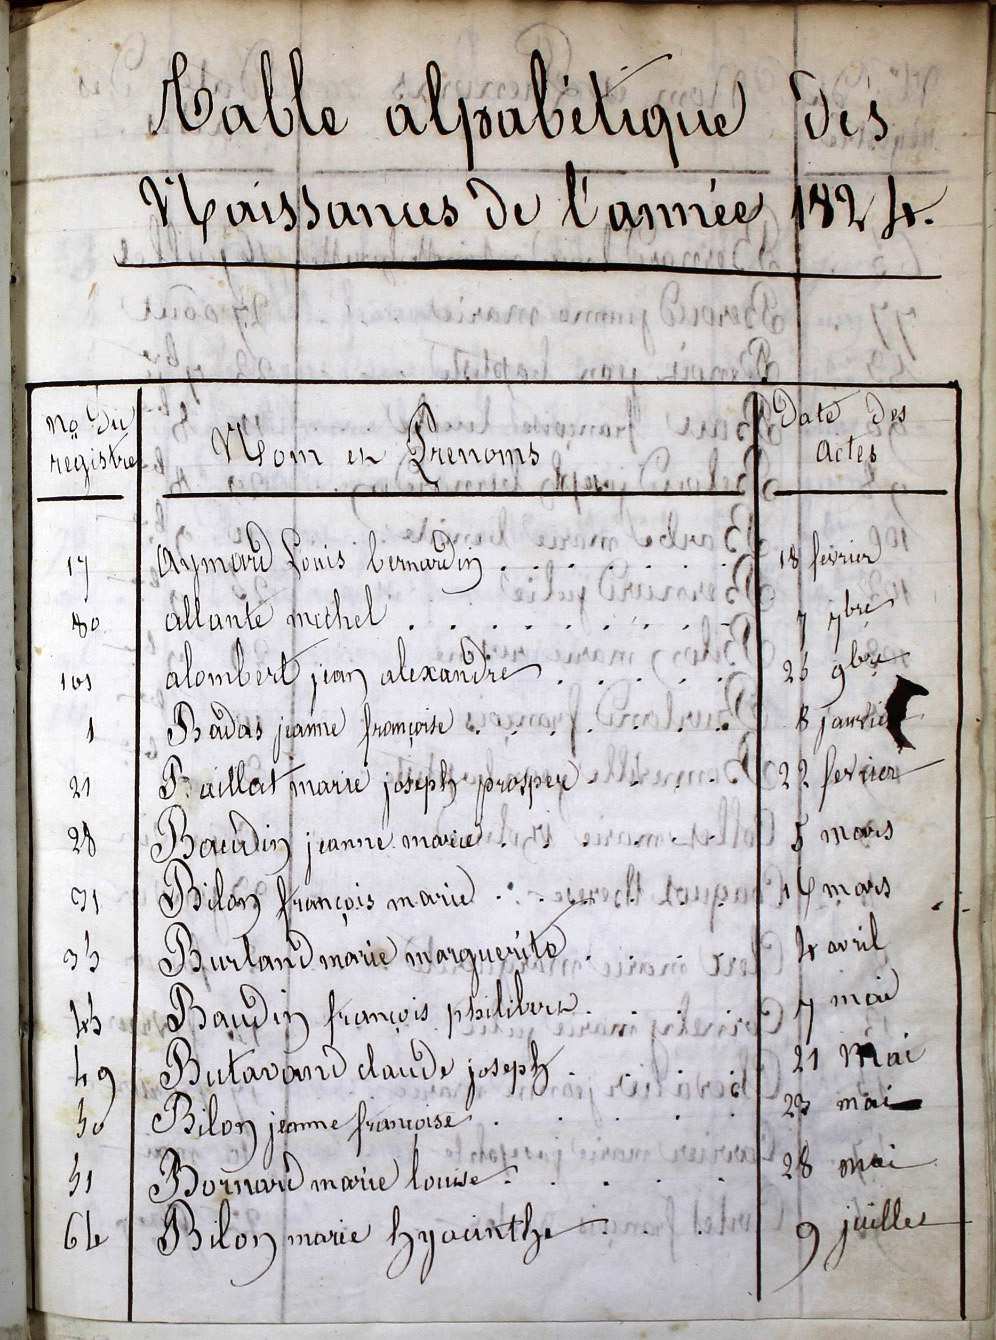 Table alpabétique des
Naissances de l'année 1824.
No du registre Nom et Prenoms Date des actes
17 Aymard Louis bernardin 18 fevrier
80 allante michel 7 7bre
101 alombert jean alexandre 26 9bre
1 Badas jeanne françoise 8 janvier
21 Baillat marie joseph prosper 22 fevrier
28 Baudin jeanne marie 5 mars
31 Bilon françois marie 14 mars
35 Burland marie marguerite 4 avril
45 Baudin françois philibert 7 mai
49 Butavand claude joseph 21 Mai
50 Bilon jeanne françoise 23 mai
51 Bornard marie louise 28 mai
64 Bilon marie hyacinthe 9 juillet